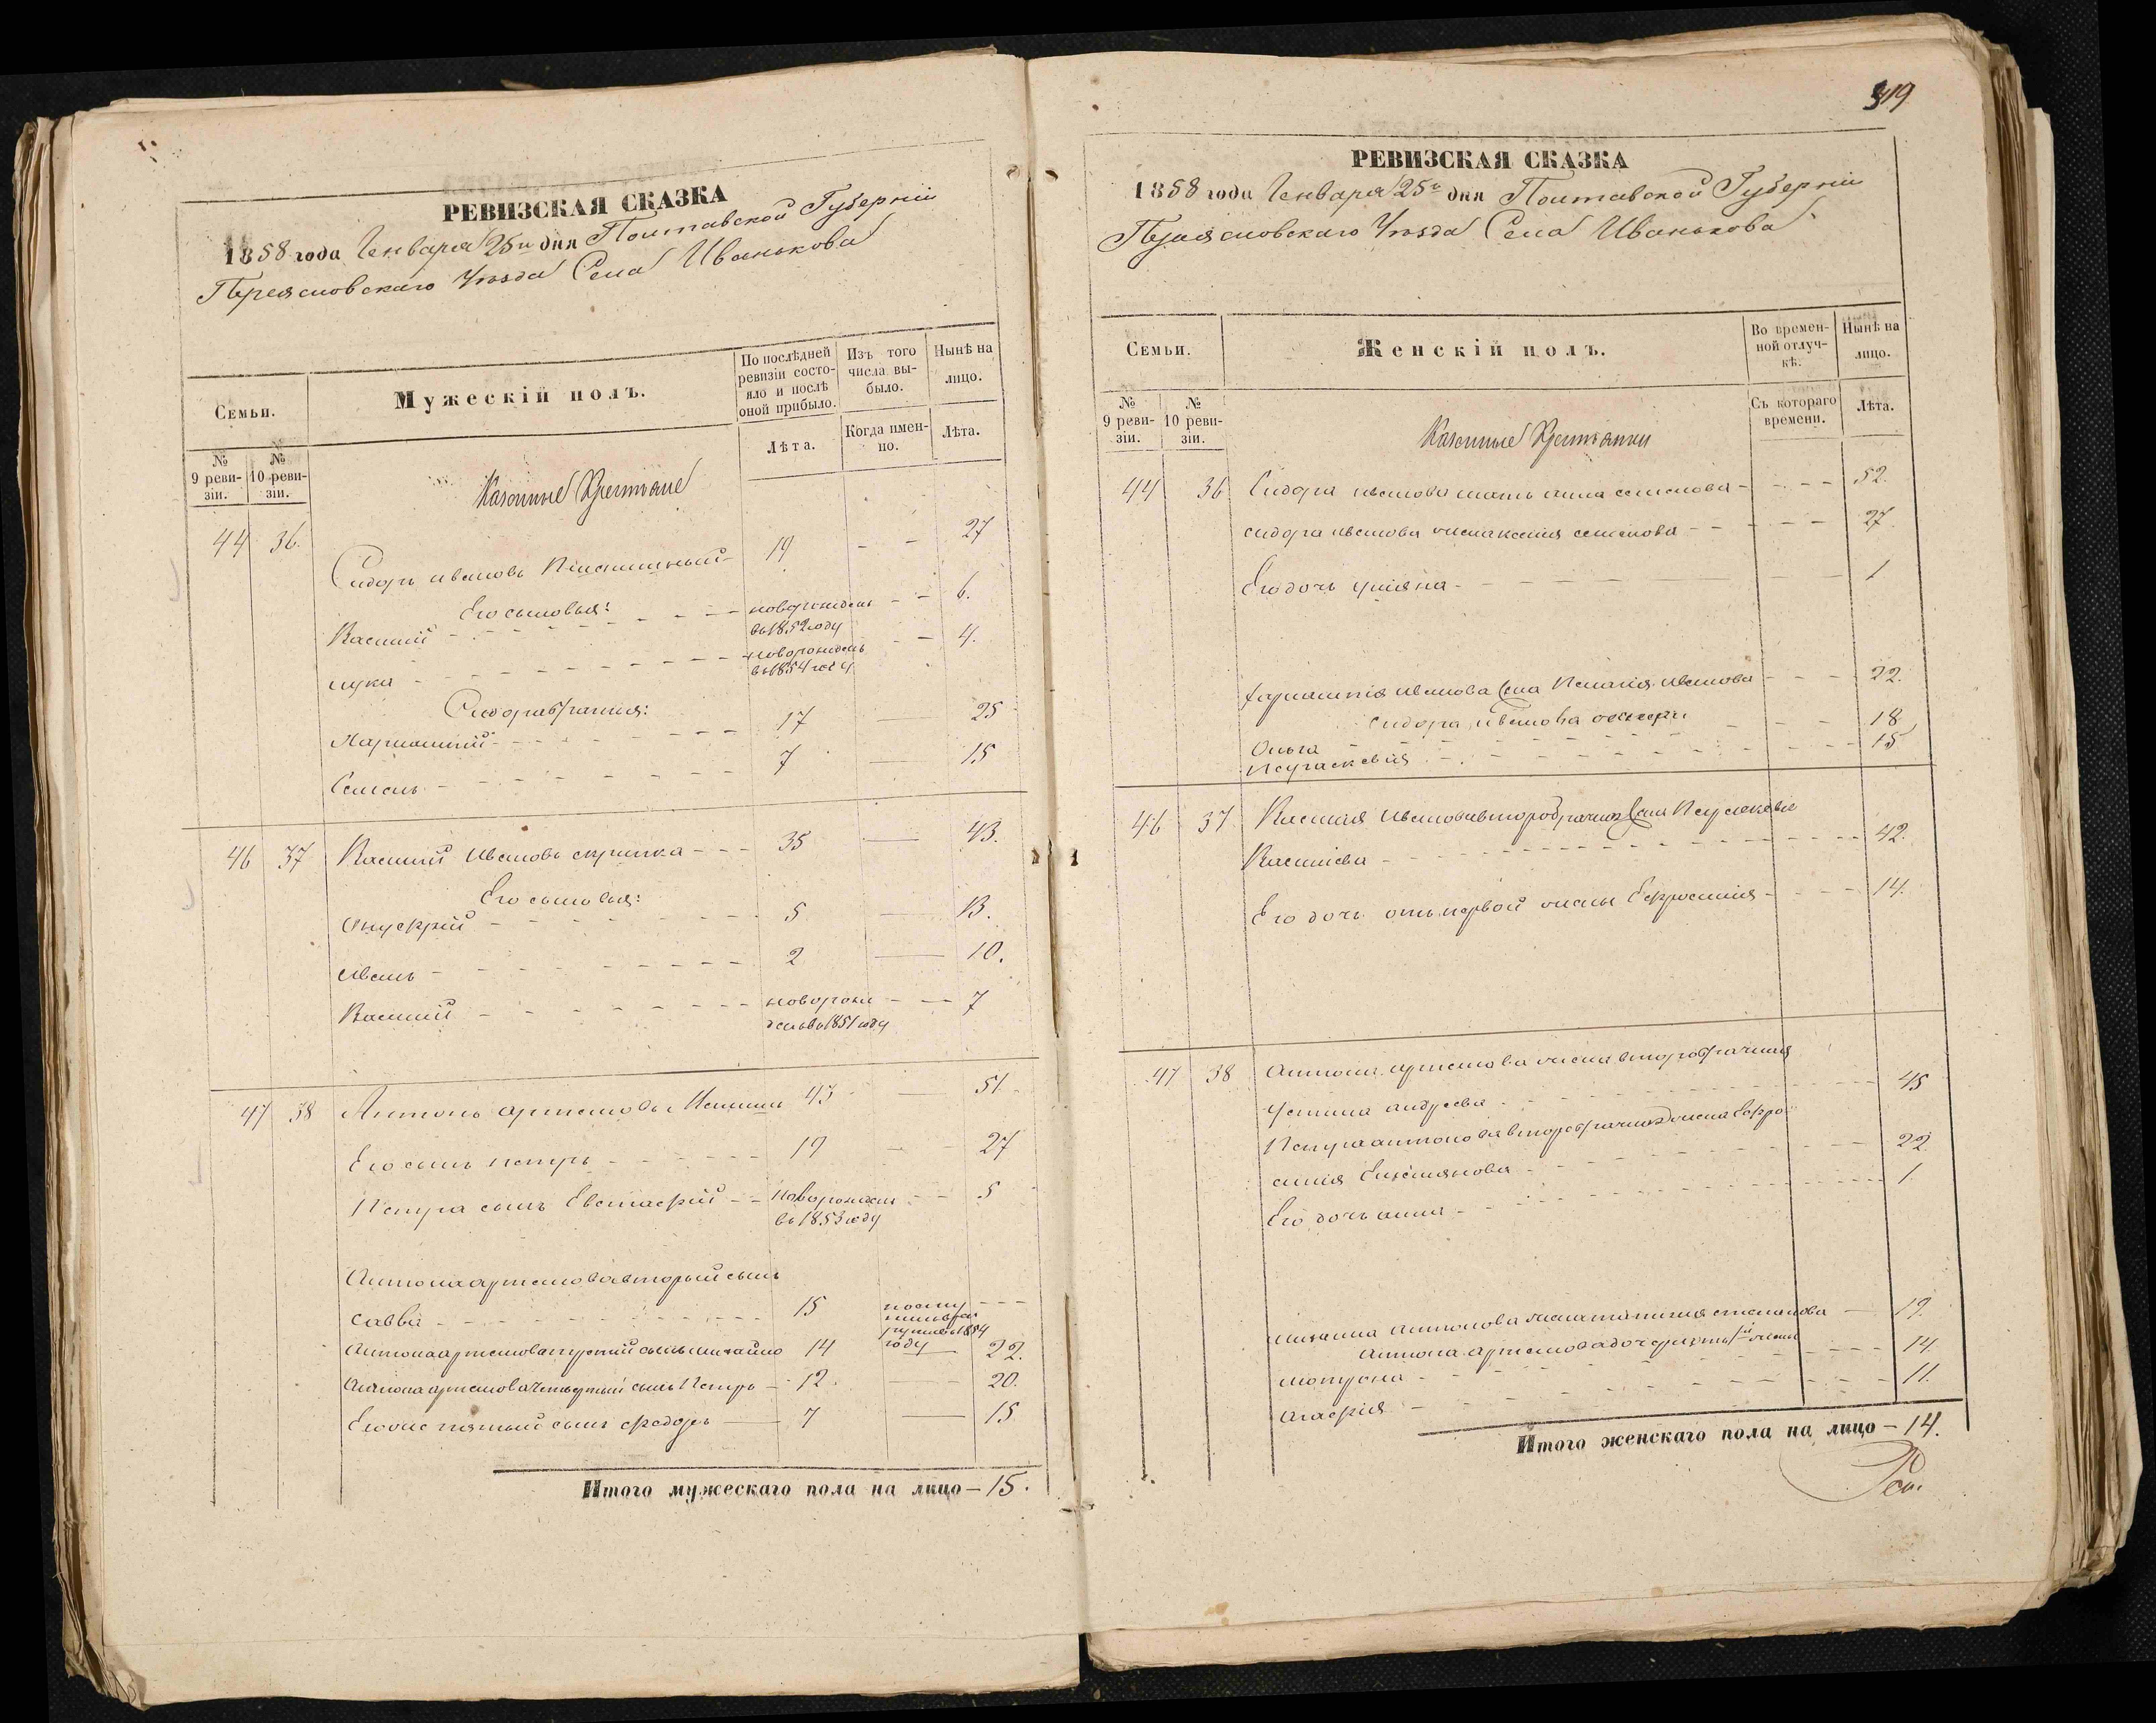 РЕВИЗСКАЯ СКАЗКА
1858 года Генваря 25го дня Полтавской Губерніи
Переясловскаго Уѣзда Села Иванькова
Семьи.
Мужескій полъ.
По послѣдней ревизіи состояло и послѣ оной прибыло.
Изъ того числа выбыло.
Нынѣ на лицо.
№ 9 ревизіи.
№ 10 ревизіи.
Лѣта.
Когда именно.
Лѣта.
Казенные Крестьяне
44 36. Сидоръ ивановъ 19 - - 27
Его сыновья:
Василий - - - новорожденъ въ 1852 году - - 6.
лука - - - новорожденъ въ 1854 году - - 4.
Сидора братья:
17 — 25
Семенъ - - - 7 — 15
46 37 Василий Ивановъ скрипка - - - 35 — 43.
Его сыновья:
Онуфрій - - - 5 — 13.
Иванъ - - - 2 — 10.
Василий - - - новорожденъ въ 1851 году - - 7
47 38 Антонъ артемовъ 43 — 51
Его сынъ петръ - - - 19 — 27
Петра сынъ Евстафій - - новорожденъ въ 1853 году - - 5
Антона артемова вторый сынъ
савва - - - 15 1854 году - - -
Антона артемова третий сынъ михайло 14 — 22.
Антона артемова четвертый сынъ Петръ - 12. — 20.
Его же пятый сынъ федоръ — 7 — 15
Итого мужескаго пола на лицо — 15.
319
РЕВИЗСКАЯ СКАЗКА
1858 года Генваря 25го дня Полтавской Губерніи
Переясловскаго Уѣзда Села Иванькова
Семьи.
Женскій полъ.
Во временной отлучкѣ.
Нынѣ на лицо.
№ 9 ревизіи.
№ 10 ревизіи.
Съ котораго времени.
Лѣта.
Казенные Крестьянки
44 36 Сидора иванова мать анна семенова - - - - 52.
сидора иванова жена ксения семенова - - - - 27.
Его дочь улияна - - - 1
иванова жена иванова - - - 22.
сидора иванова сестри
Ольга - - - 18
Параскевия - - - 15
46 37 Василия Иванова второбрачная жена Параскева
Василиева - - - 42.
Его дочь отъ первой жены Ефросиния - - - 14.
47 38 Антона артемова жена второбрачная
Устина андреева - - - 45
Петра антонова второбрачная жена Ефро-
синия Емелянова - - - 22.
Его дочь анна - - - 1.
михаила Антонова жена татияна степанова — 19.
Антона артемова дочери отъ 1й жены
мотрона - - - 14.
Агафия - - - 11.
Итого женскаго пола на лицо — 14.